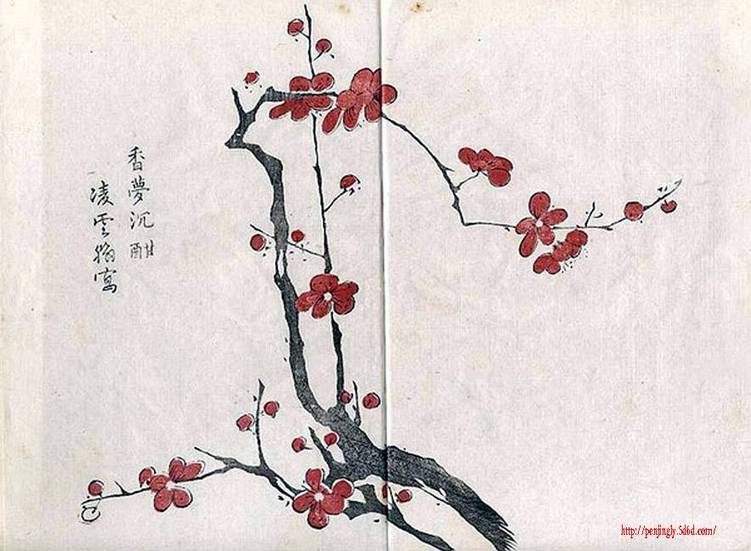 香夢沉酣
凌雲翰寫
http://penjingly.5d6d.com/